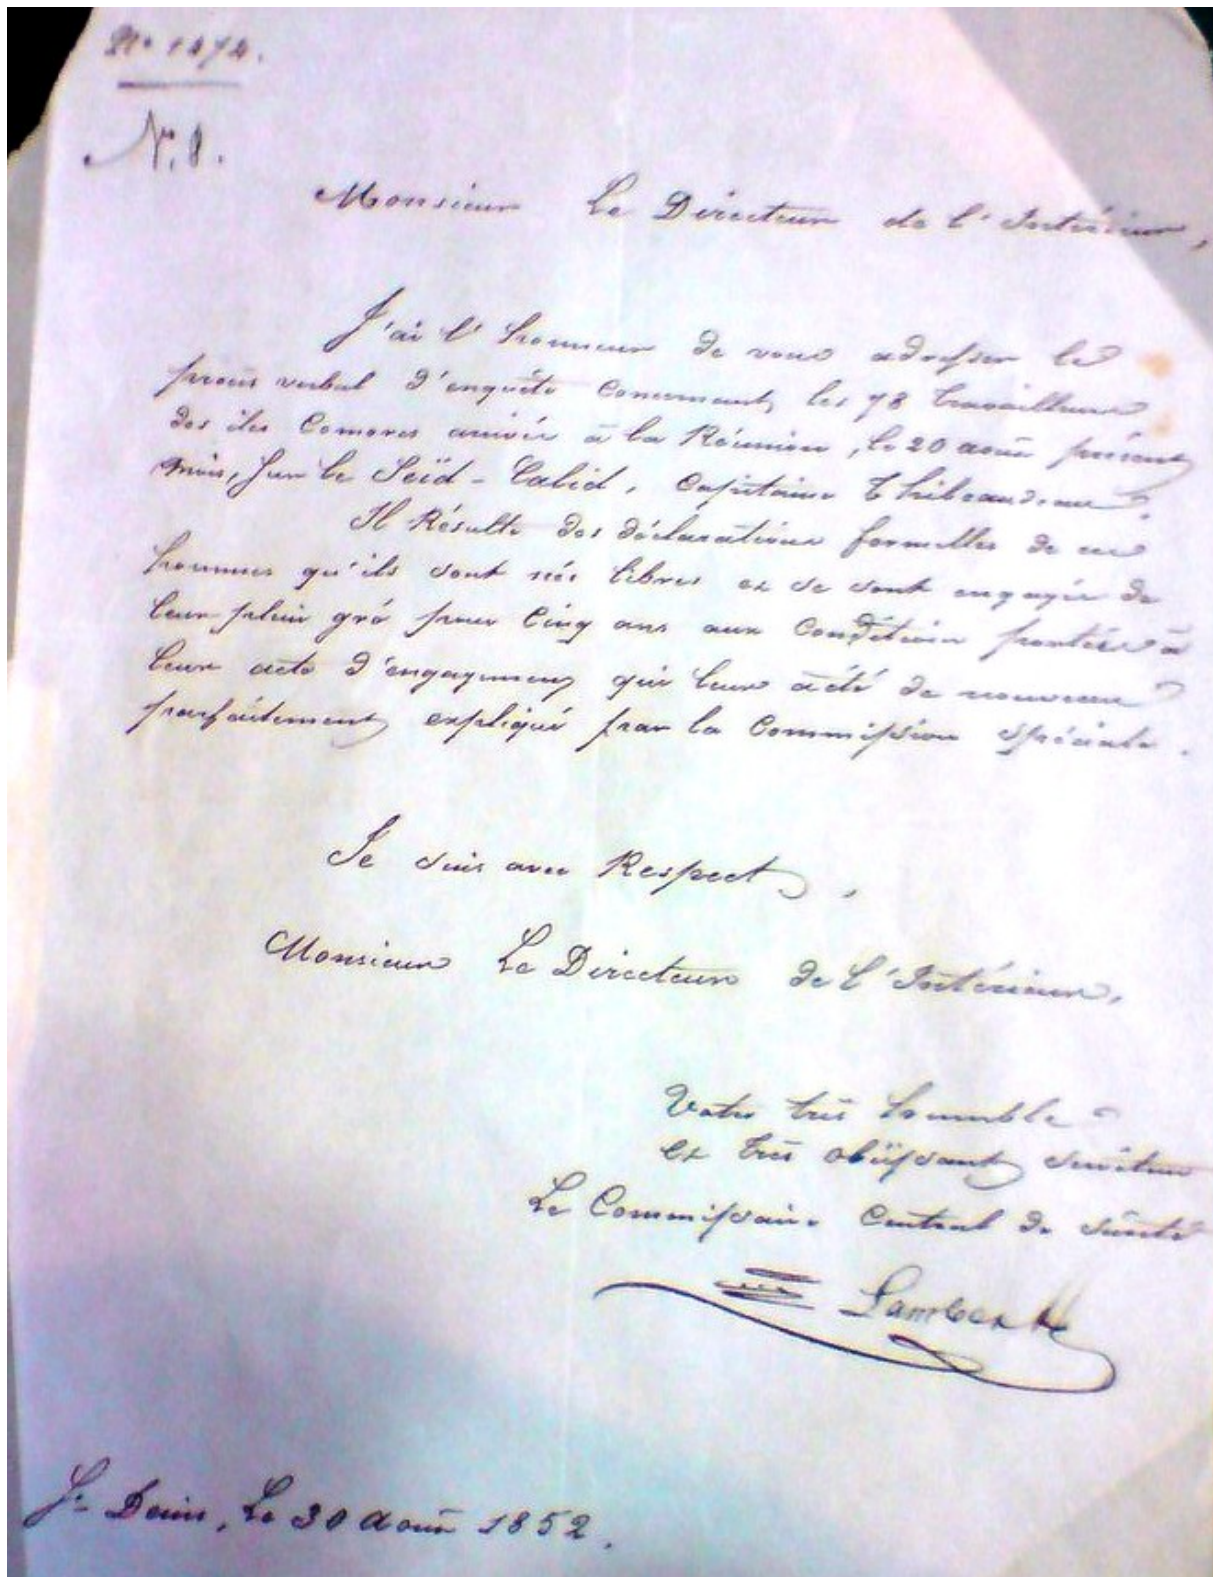 N° 1272.
N. 8.
Monsieur Le Directeur de l'Intérieur,
J'ai l'honneur de vous adresser le
procès verbal d'enquête concernant les 78 travailleurs
des iles Comores arrivés à la Réunion, le 20 août présent
mois, sur le Seïd-Calid, Capitaine Thibeaudeau.
Il Résulte des déclarations formelles de ces
hommes qu'ils sont nés libres et se sont engagés de
leur plein gré pour Cinq ans aux Conditions portées à
leur acte d'engagement qui leur a été de nouveau
parfaitement expliqué par la Commission spéciale.
Je suis avec Respect,
Monsieur Le Directeur de l'Intérieur,
Votre très humble
et très obéissant serviteur
Le Commissaire Central de sûreté
Lambert
St Denis, Le 30 Août 1852.